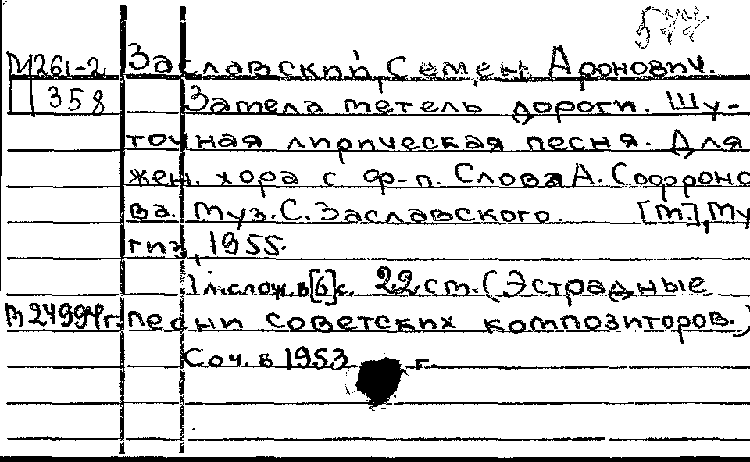 М261-2 Заславский, Семен Аронович.
358 Замела метель дороги. Шу-
точная лирическая песня. Для
жен. хора с ф-п. Слова А. Софроно
ва. Муз. С. Заславского. [М], Му
гиз, 1955.
1 л. слож. в [6] с. 22 см. (Эстрадные
В24994г. песни советских композиторов.)
Соч. в 1953 г.